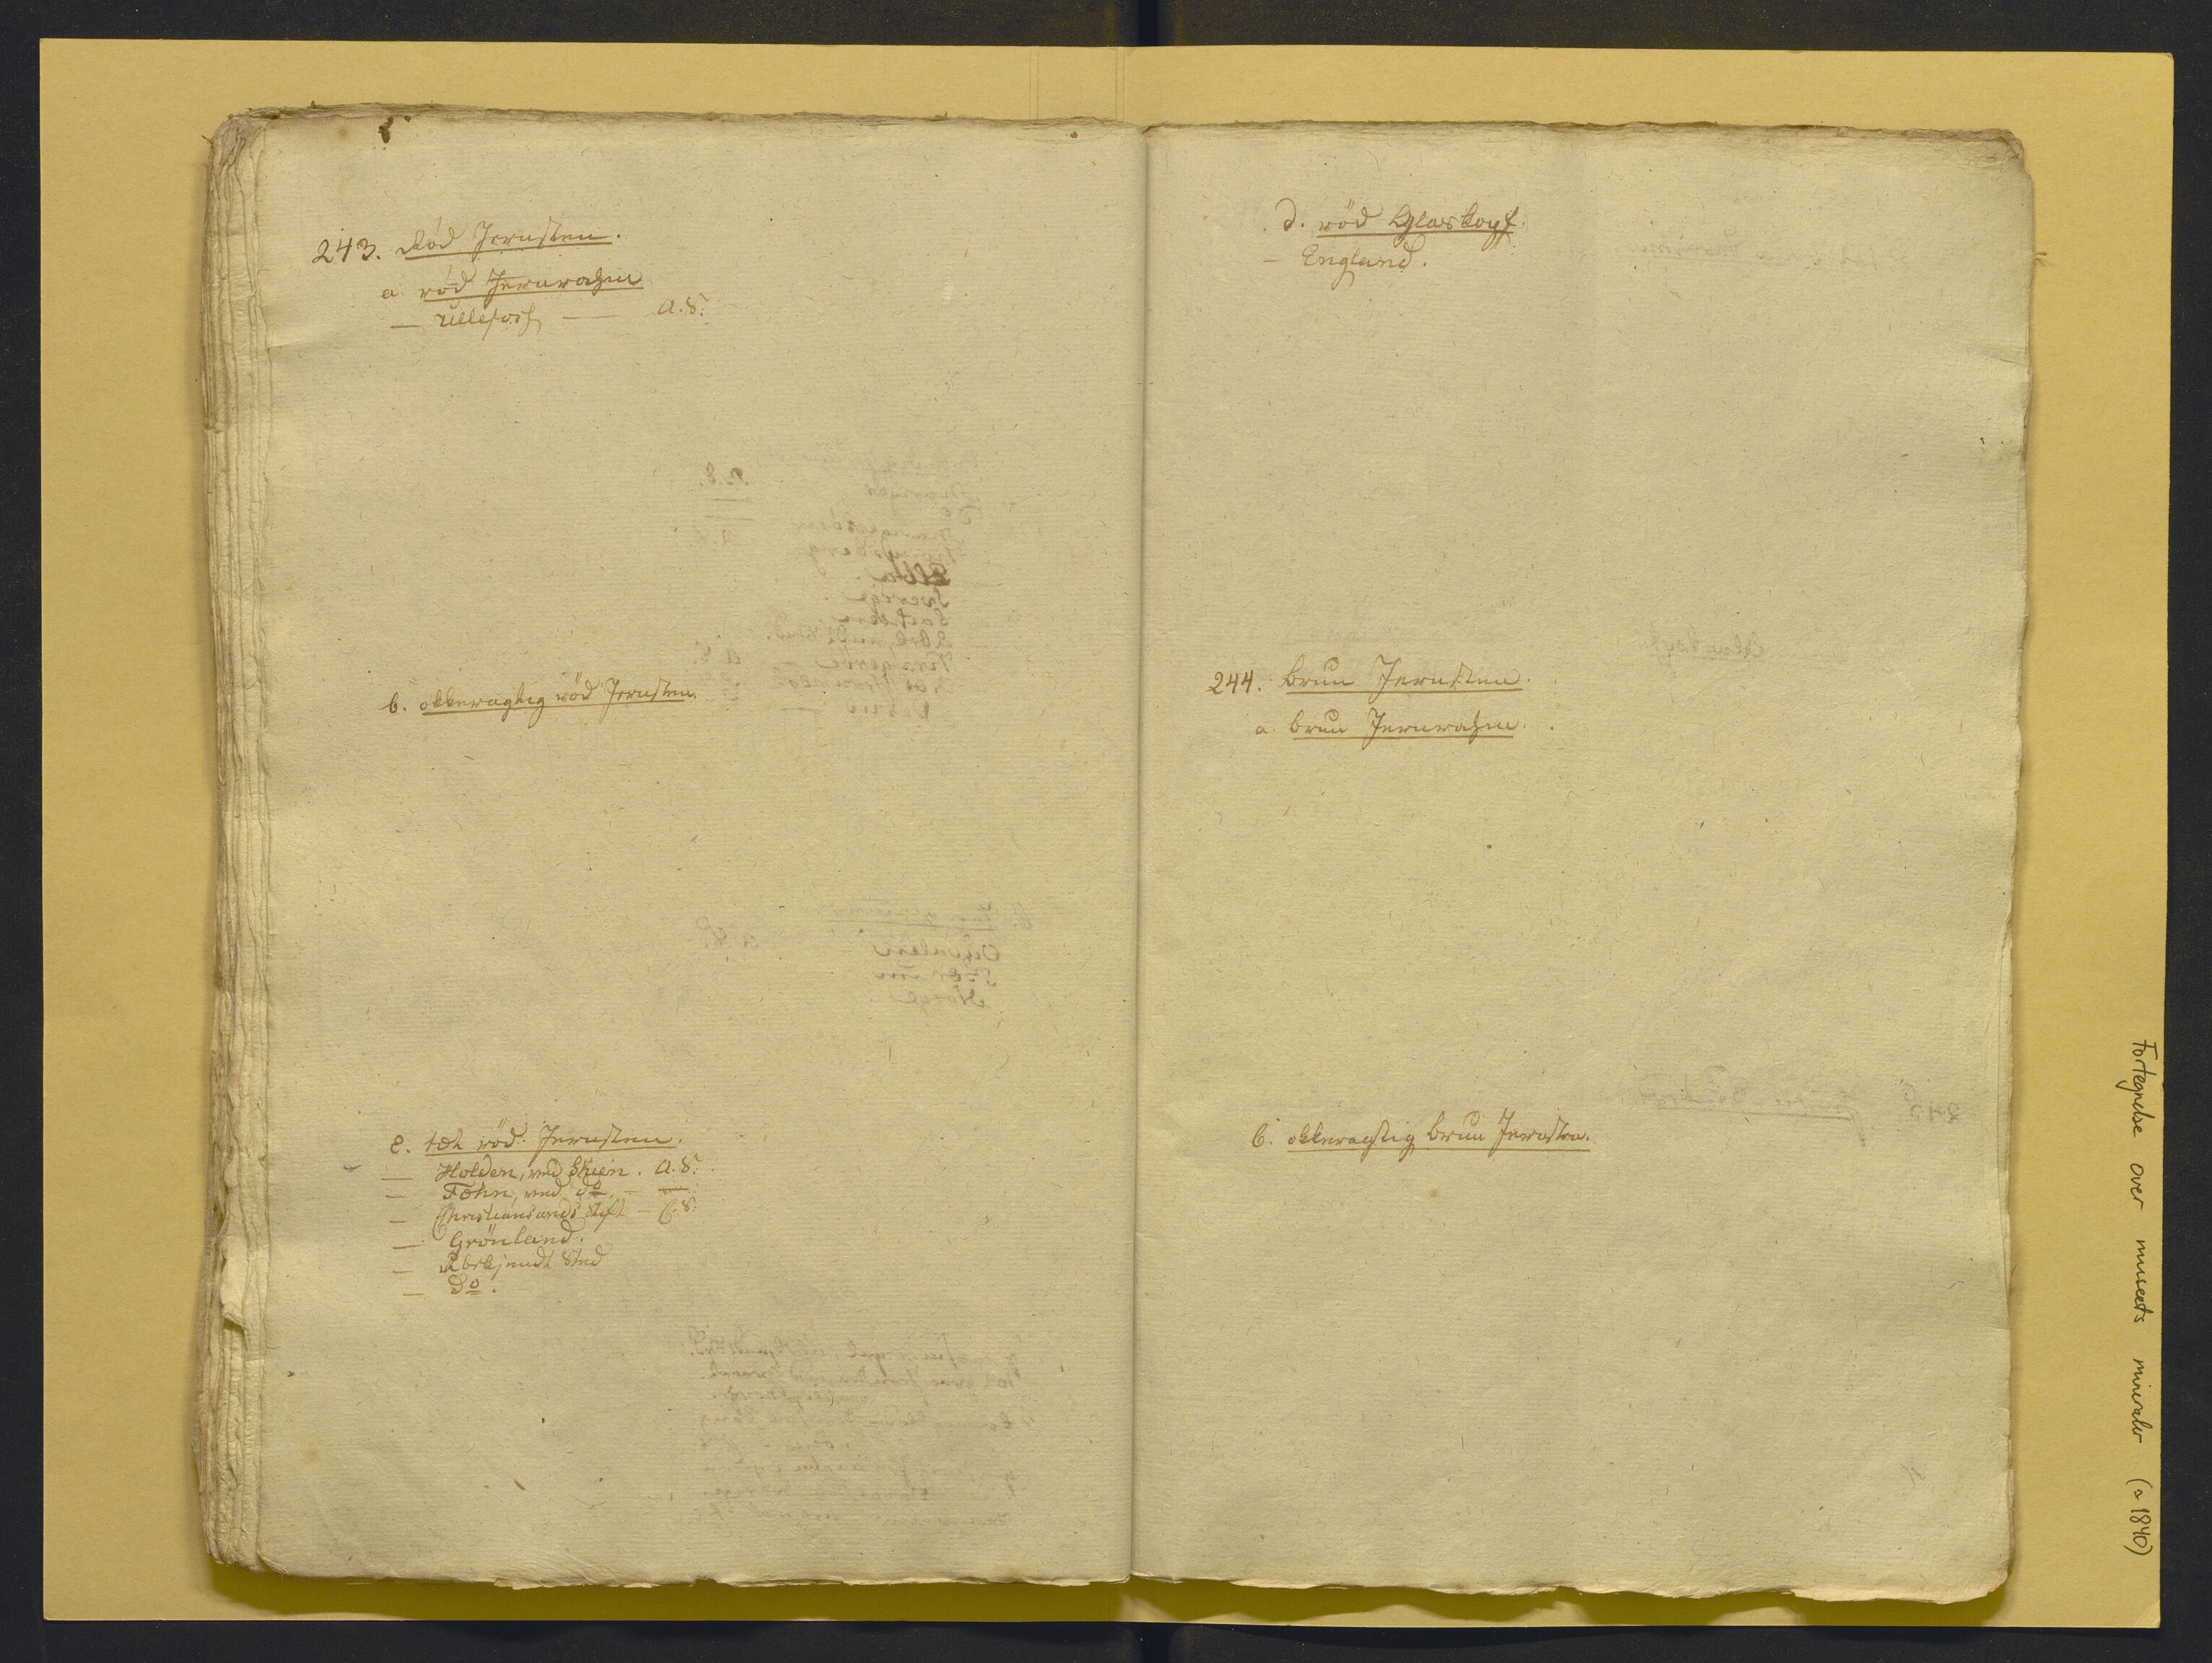 243. Rød Jernsten.
a. rød Jernrahm
— Ullefoss — A.S.
b. okkeragtig rød Jernsten.
c. tæt rød Jernsten.
— Holden, ved Skien. A.S.
— Fæhn, ved do. —
— Christiansands Stift — C.S.
— Grönland.
— Ubekjendt Sted
— do.
d. röd Glaskopf.
— England.
244. Brun Jernsten.
a. brun Jernrahm.
b. okkeragtig brun Jernsten.
Fortegnelse over museets mineraler (a 1840)